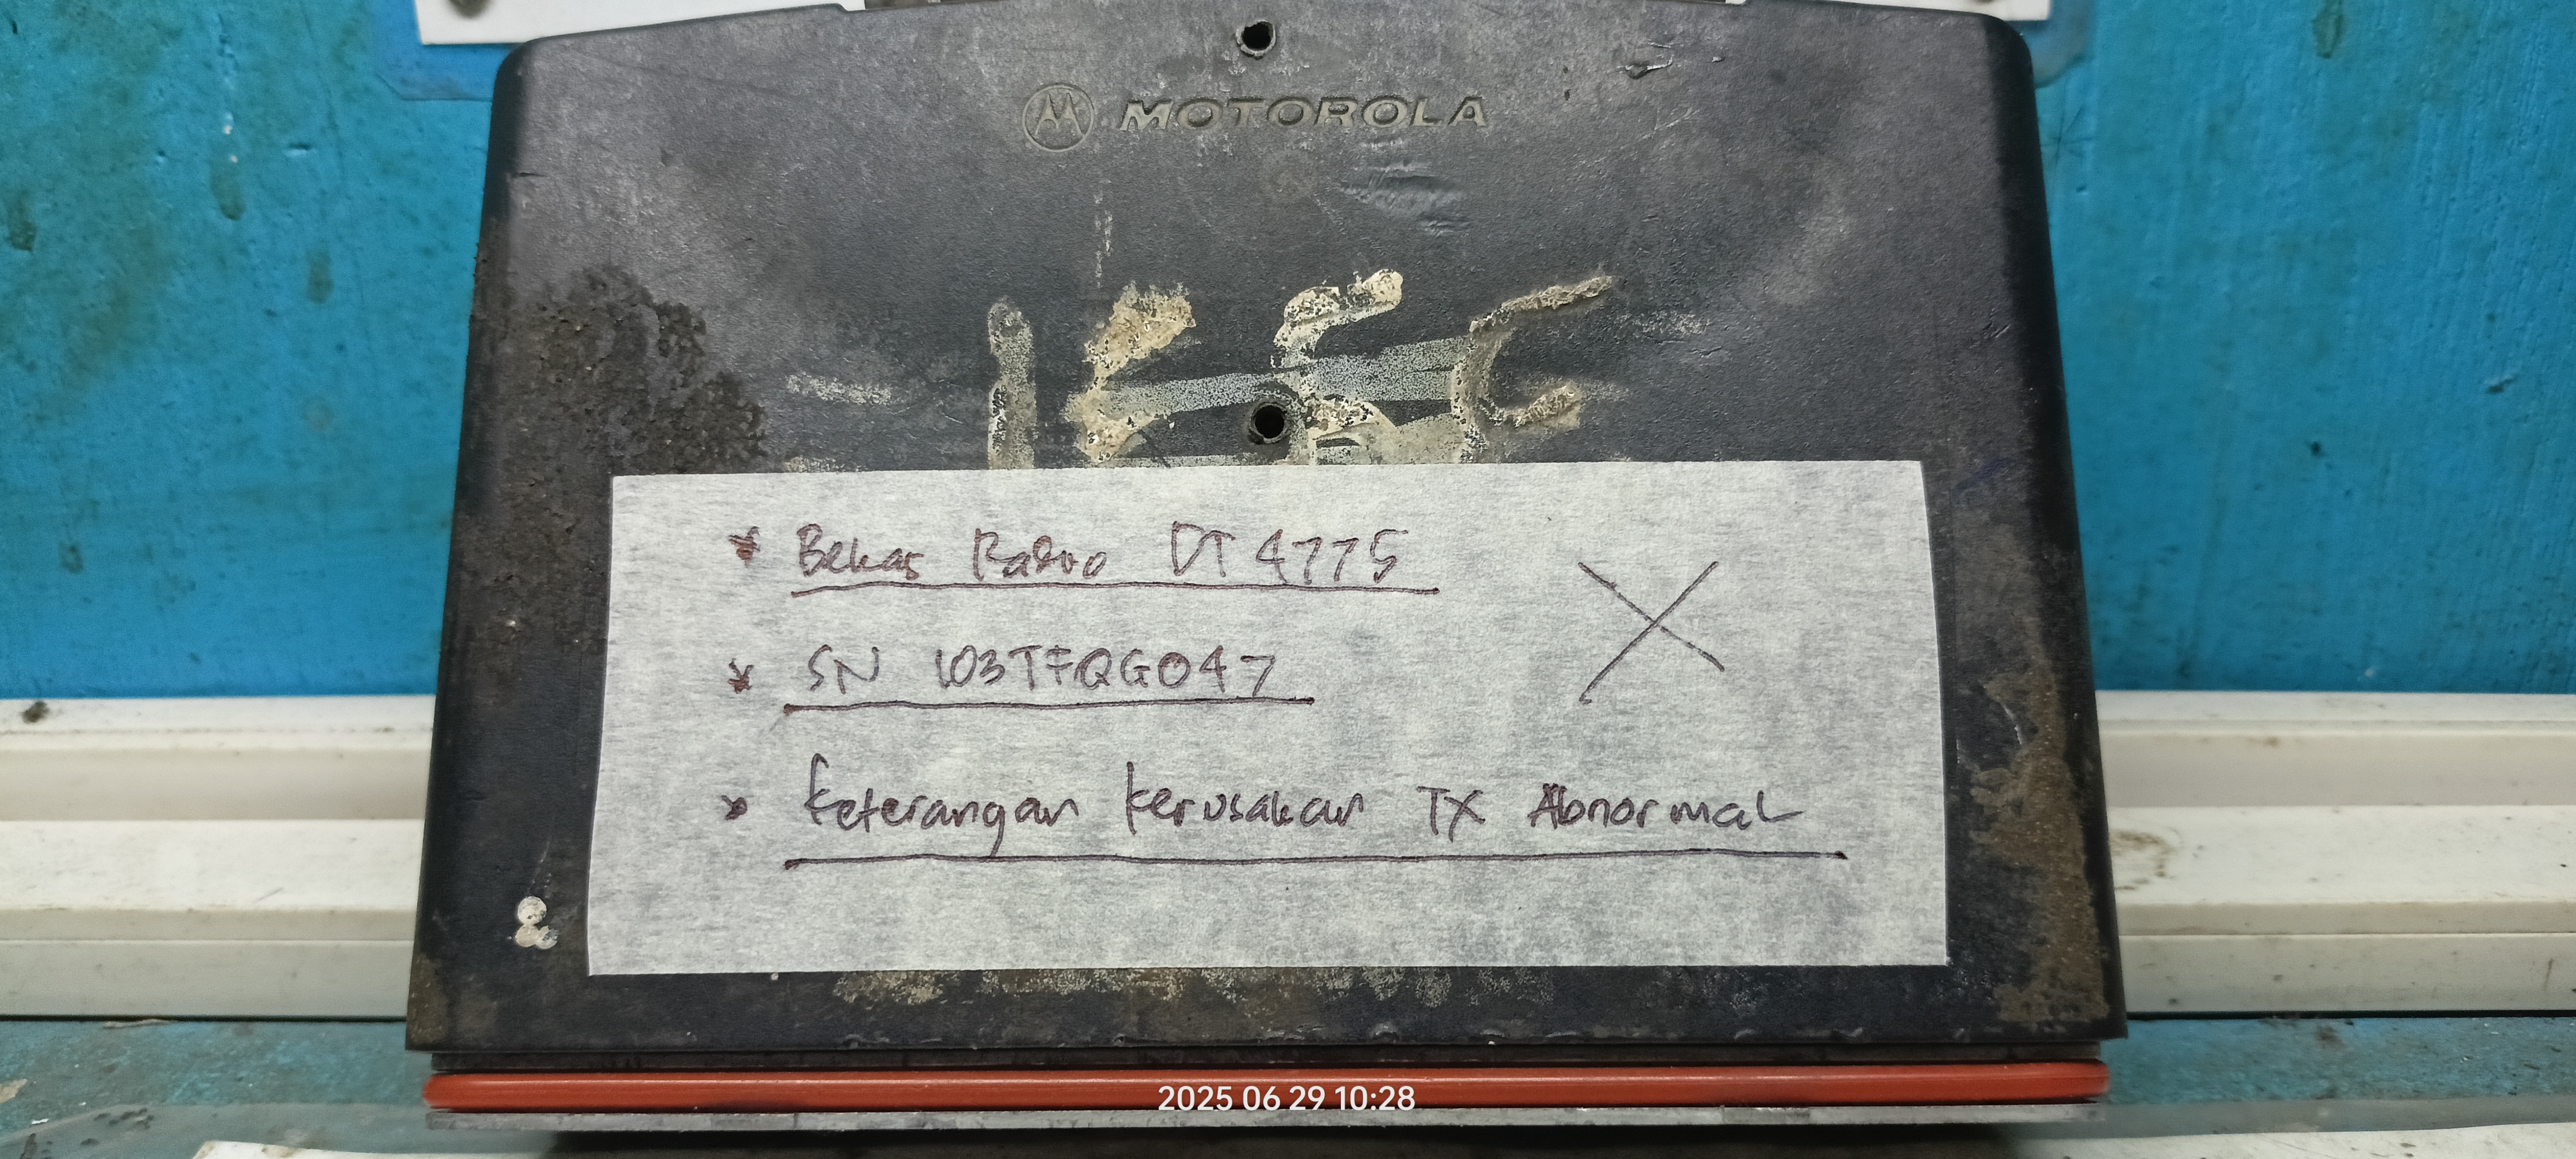 MOTOROLA
* Bekas Radio DT 4775
* SN 103TFQG047
* Keterangan kerusakan TX Abnormal
2025 06 29 10:28